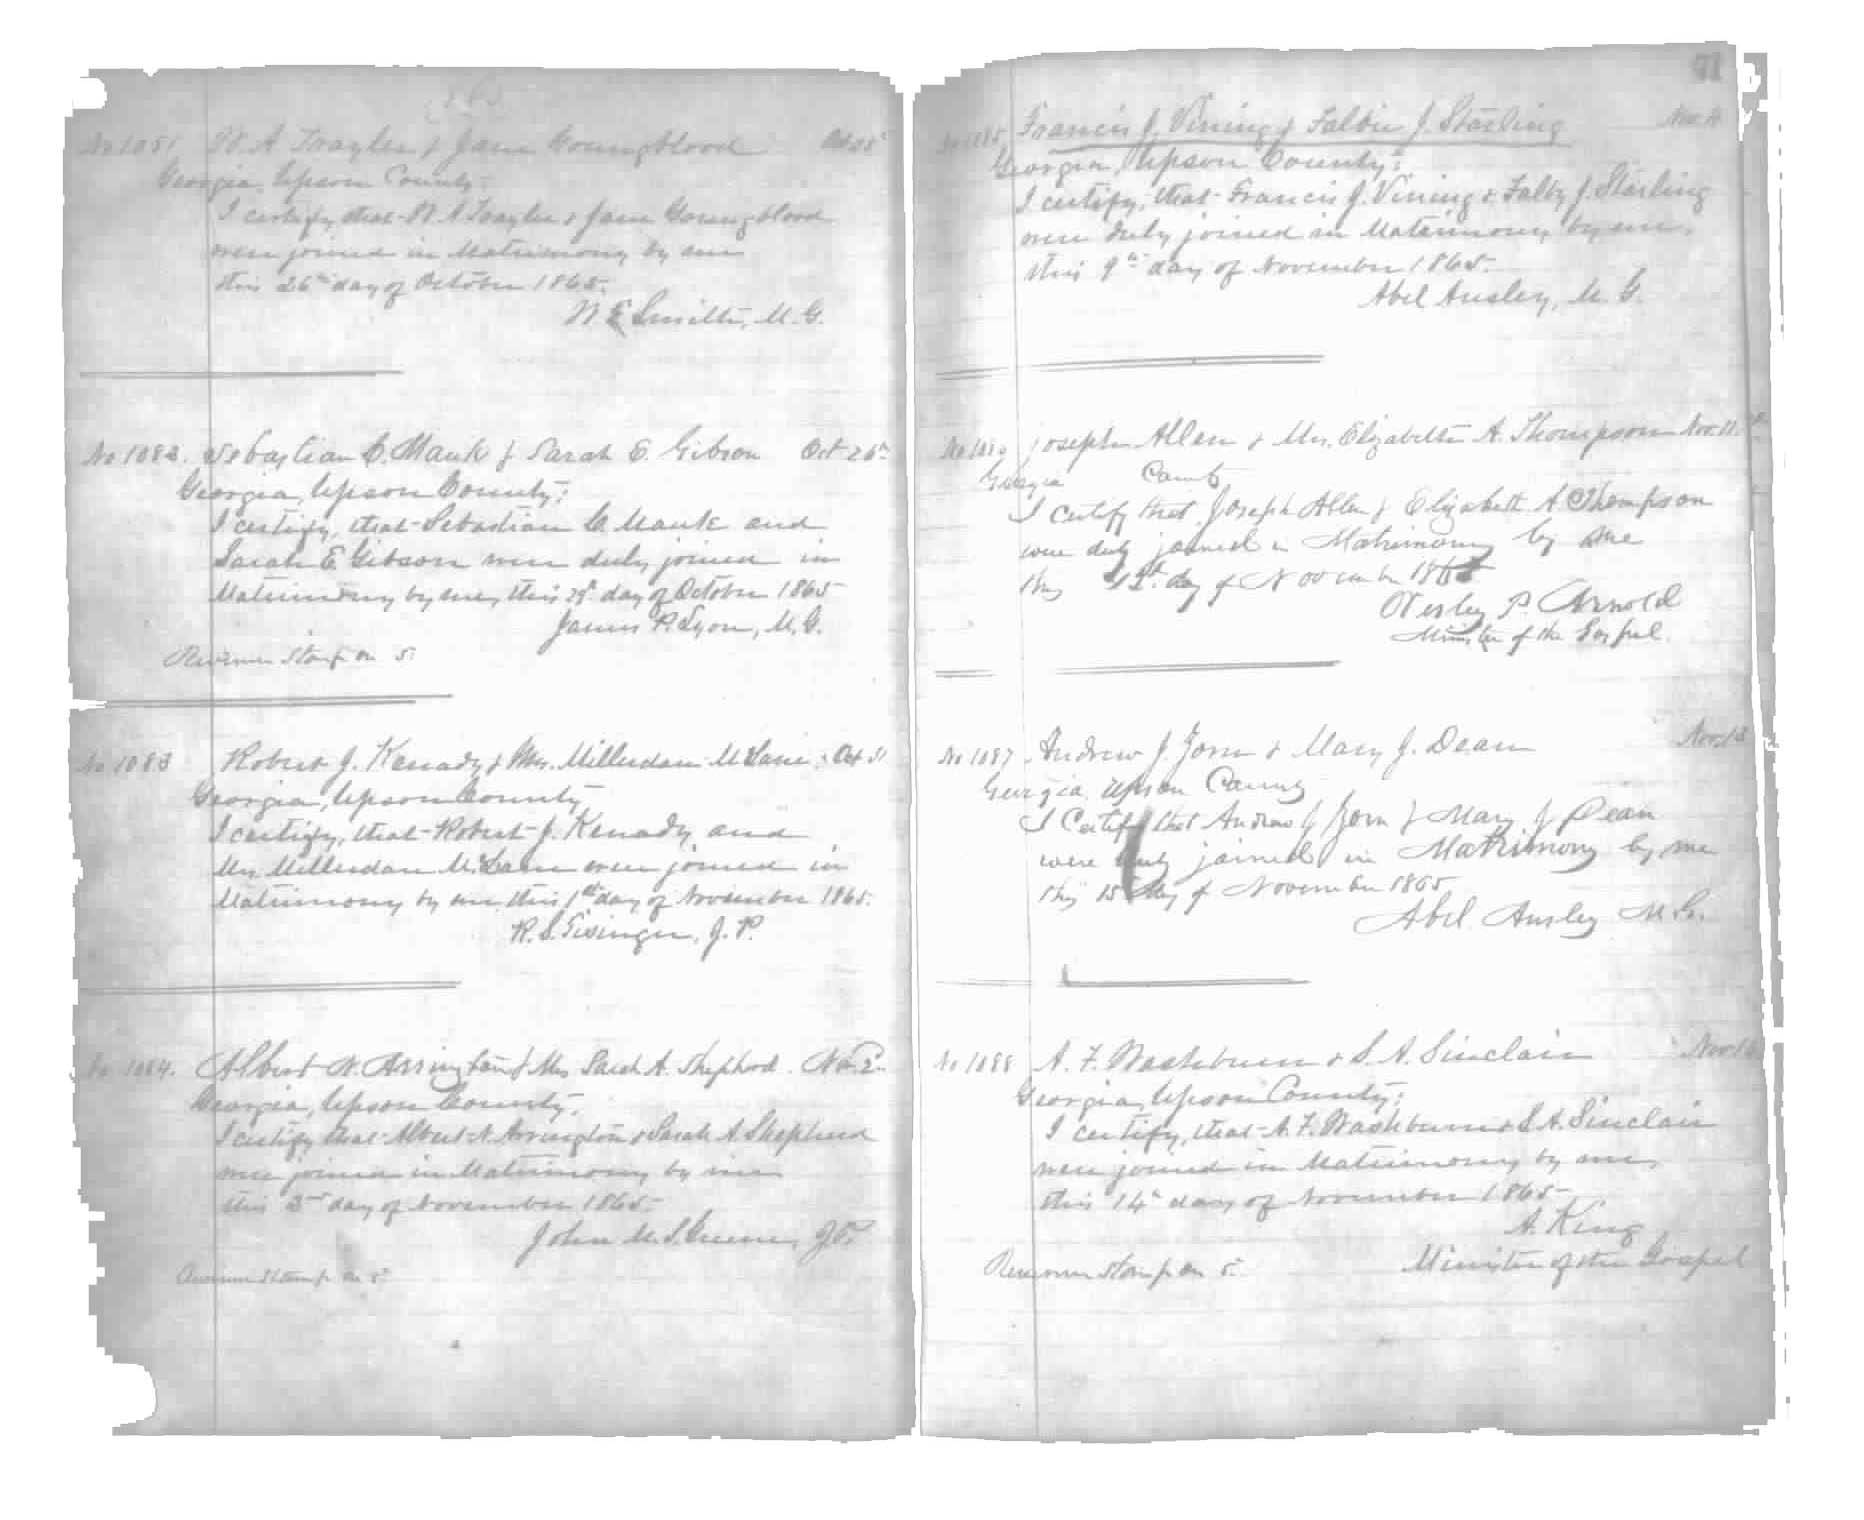 No 1081 W. A Traylor & Jane Youngblood Oct 25
Georgia, Upson County:
I certify, that W A Traylor & Jane Youngblood
were joined in Matrimony by me
this 26th day of October 1865.
W E Smith, M. G.
No 1082. Sebastian C. Mauk & Sarah E. Gibson Oct 26th
Georgia, Upson County:
I certify, that Sebastian C. Mauk and
Sarah E Gibson were duly joined in
Matrimony by me, this day of October 1865
James P. Lyon, M. G.
Revenue Stamp on 5.
No 1083 Robert J. Kenady & Mrs. Millerdan McLane, Oct 31
Georgia, Upson County
I certify, that Robert J. Kenady and
Mrs Millerdan McLane were joined in
Matrimony by me, this 1st day of November 1865.
R. S. J. P.
No 1084. Albert N. Arrington & Mrs Sarah A. Shepherd. Nov. 2
Georgia, Upson County,
I certify that Albert N Arrington & Sarah A Shepherd
were joined in Matrimony by me
this 2nd day of November 1865.
John M. S. Greene, J. P.
Revenue Stamp on 5
71
No 1085 Francis J. Vining & Falbie J. Starling Nov.
Georgia, Upson County:
I certify, that Francis J. Vining & Falby J. Starling
were duly joined in Matrimony by me,
this 9th day of November 1865.
Abel Ansley, M. G.
No 1086 Joseph Allen & Mrs. Elizabeth A. Thompson Nov. 11
Georgia County
I certify that Joseph Allen & Elizabeth A Thompson
were duly joined in Matrimony by me
this 12th day of November 1865
Wesley P. Arnold
Minister of the Gospel.
No 1087 Andrew J. Jorn & Mary J. Dean Nov. 13
Georgia, Upson County
I Certify that Andrew J Jorn & Mary J Dean
were duly joined in Matrimony by me
this 15 day of November 1865
Abel Ansley M. G.
No 1088 A. F. Washburn & S. A. Sinclair Nov. 14
Georgia, Upson County:
I certify, that A. F. Washburn & S. A. Sinclair
were joined in Matrimony by me,
this 14th day of November 1865
A. King
Revenue Stamp on 5. Minister of the Gospel